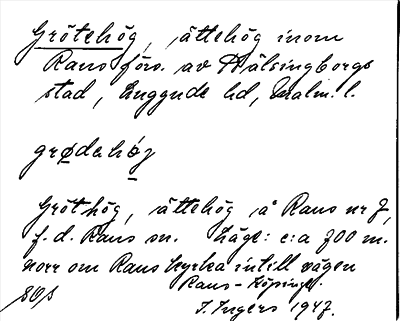 Grötehög, ättehög inom
Raus förs. av Hälsingborgs
stad, Luggude hd, Malm. l.
grødahög
Gröthög, ättehög å Raus nr 7,
f. d. Raus sn. Läge: c:a 700 m.
norr om Raus kyrka intill vägen
Raus - Köpinge.
I. Ingers 1947.